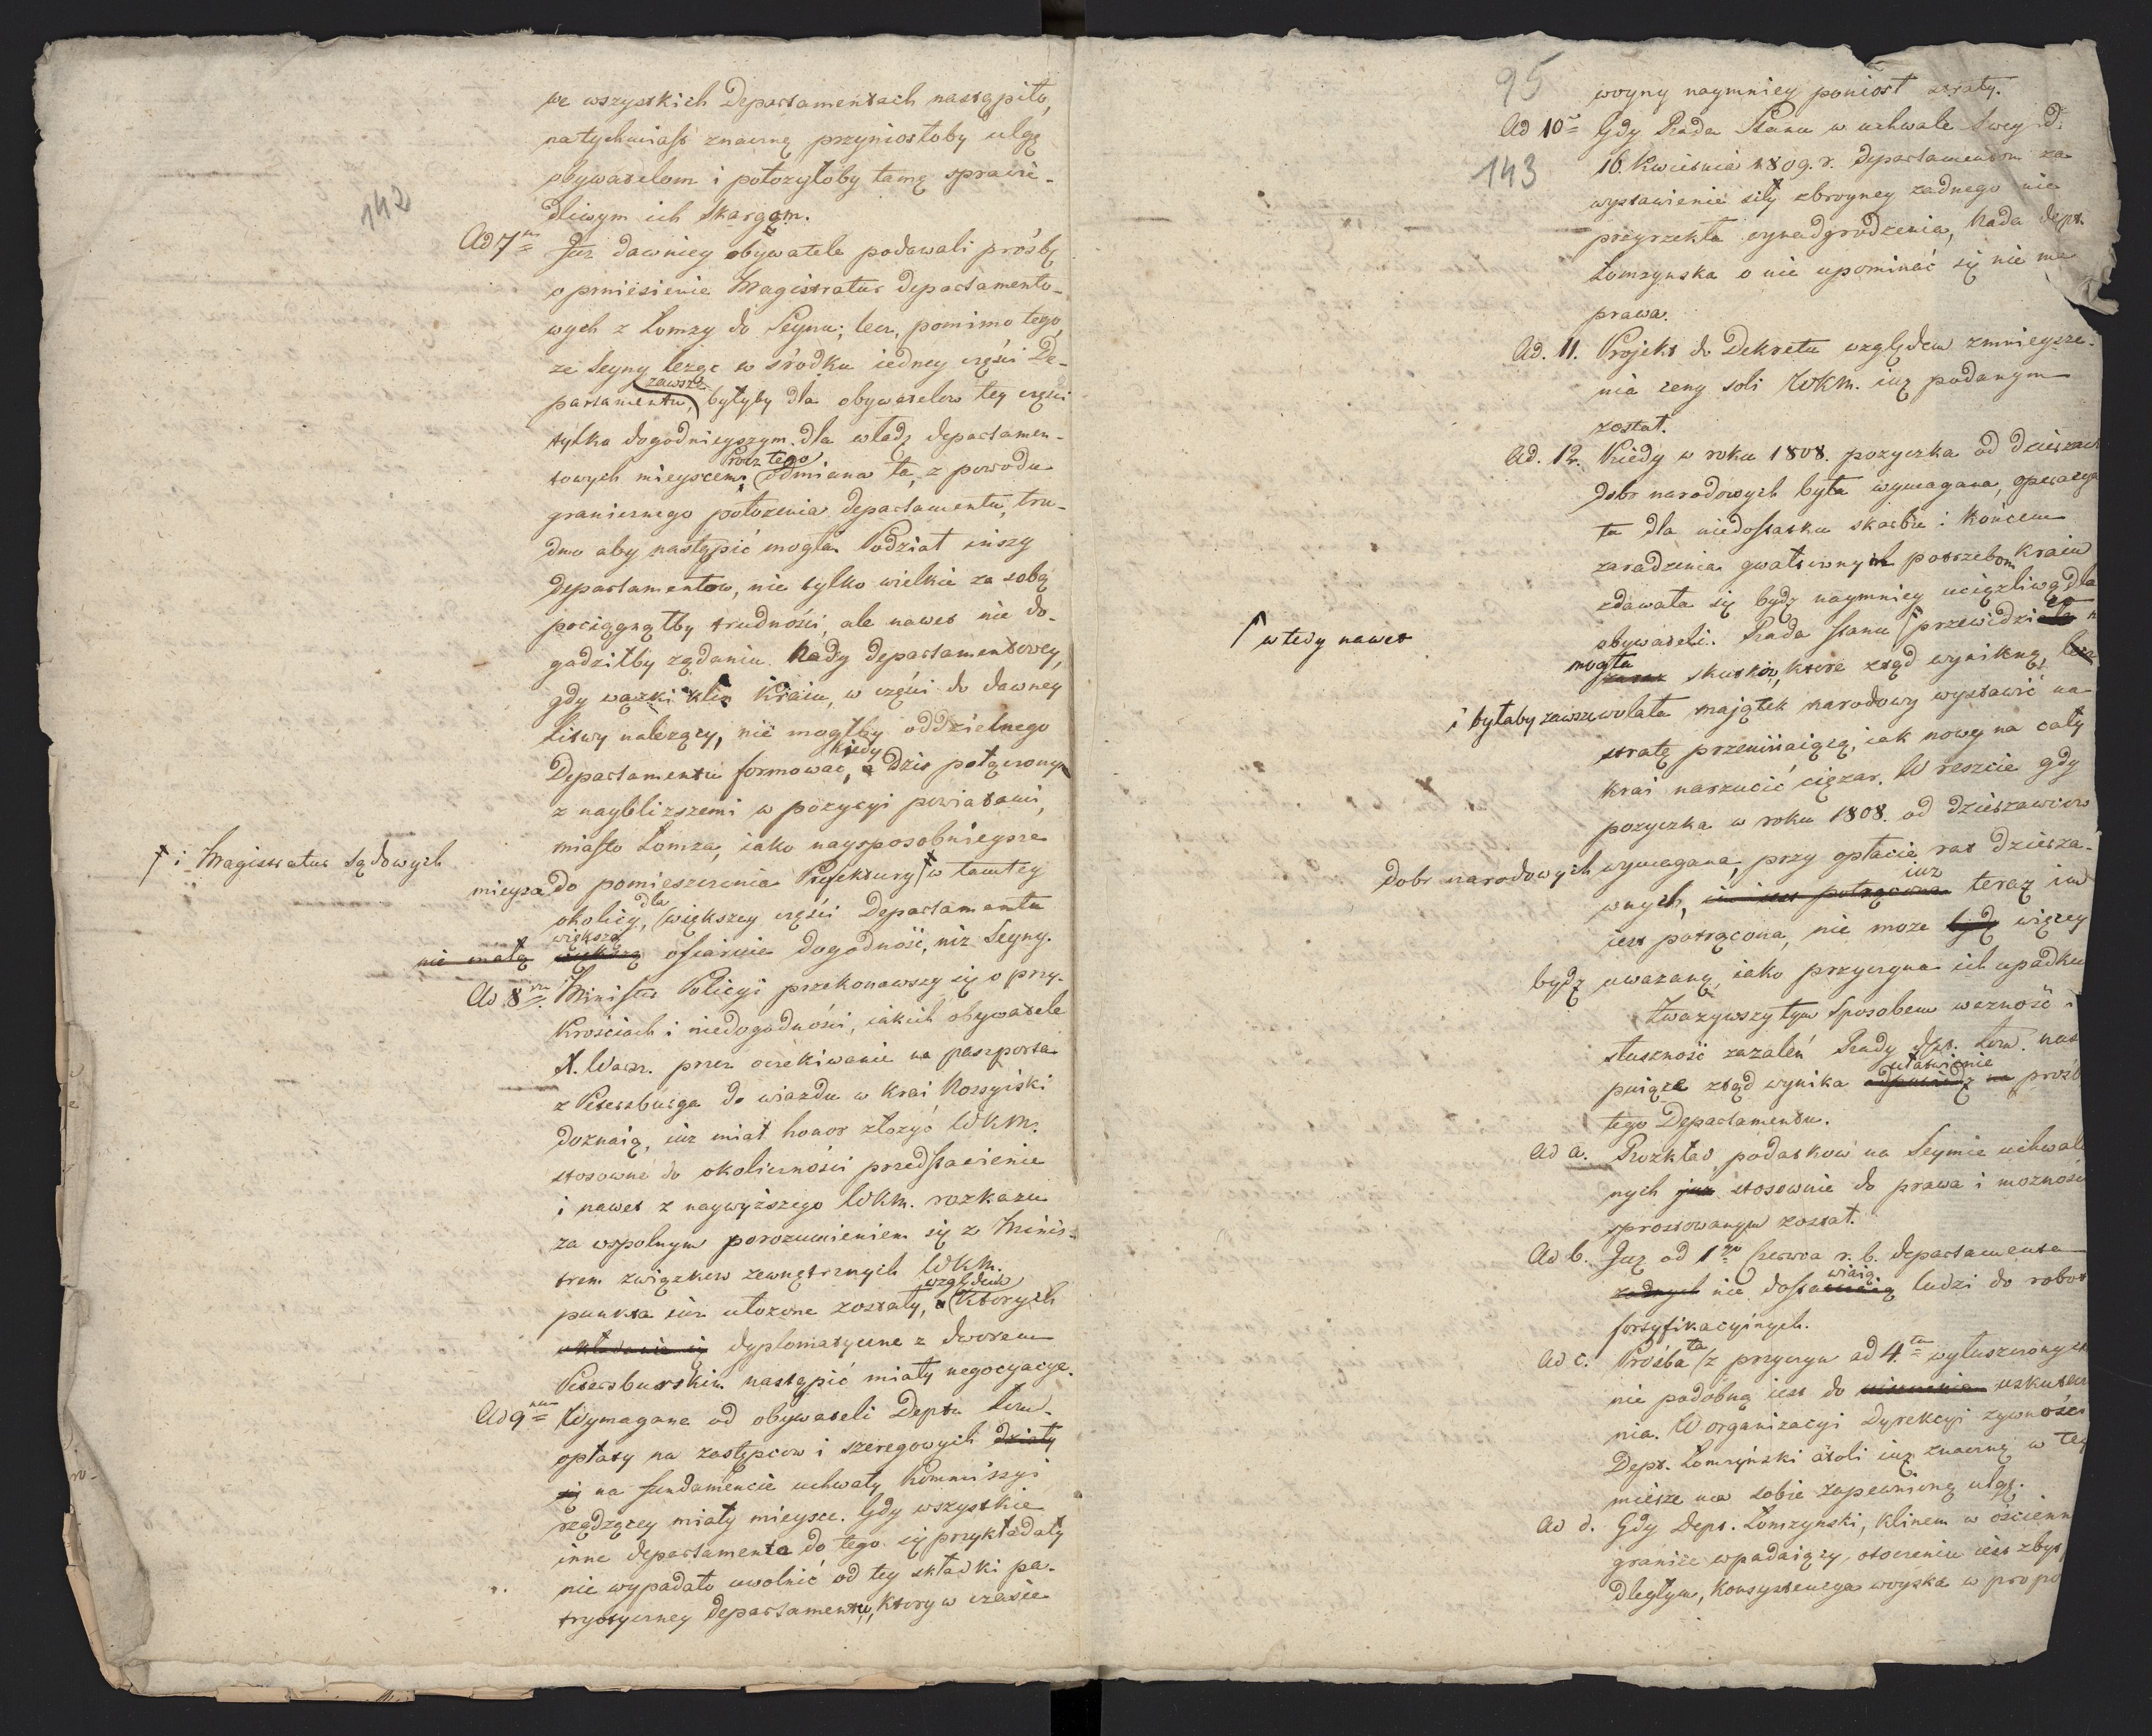 142
we wszystkich Departamentach nastąpiło,
natychmiast znaczną przyniosłoby ulgę
obywatelom i położyłoby tamę sprawie-
dliwym ich skargom.
Ad 7um Juz dawniey obywatele podawali prośbę
o przniesienie Magistratur Departamento-
wych z Łomzy do Seyna; lecz, pomimo tego,
że Seyny leżąc w srodku iedney części De-
partamentu, zawsze byłyby dla obywatelow tey części
tylko dogodnieyszym dla władz departamen-
towych mieyscem; Procz tego odmiana ta, z powodu
granicznego położenia departamentu, tru-
dno aby nastąpić mogła. Podział inszy
departamentow, nie tylko wielkie za sobą
pociągnąłby trudności, ale nawet nie do-
gadziłby ządaniu Rady departamentowey,
gdy wązki klin Kraiu, w części do dawney
Litwy nalezący, nie mogłby oddzielnego
Departamentu formować, kiedy dzis połączony
z nayblizszemi w pozycyi powiatami,
miasto Łomza, iako naysposobnieysze
mieysca do pomieszczenia Prefektury † w tamtey
† i Magistratur sądowych
okolicy, dla większey części Departamentu
nie małą większą większą ofiaruie dogodność, niz Seyny.
Ad 8vu Minister Policyi przekonawszy się o przy-
krościach i niedogodności, iakich obywatele
X. Warsz. przez oczekiwanie na paszporta
z Petersburga do wiazdu w Krai Rossyiski
doznaią, iuz miał honor złozyć WKM.
stosowne do okoliczności przedstawienie
i nawet z naywyższego WKM. rozkazu
za wspolnym porozumieniem się z Minis-
trem związkow zewnętrznych WKM.
punkta iuz ułozone zostały, względem ktorych
układanie się dyplomatyczne z dworem
Petersburskim nastąpić miały negocyacye.
Ad 9num Wymagane od obywateli Deptu Łom.
opłaty na zastępcow i szeregowych działy
się na fundamencie uchwały Kommissyi
rządzącey miały mieysce. Gdy wszystkie
inne departamenta do tego się przykładały
nie wypadało uwolnić od tey składki pa-
tryotyczney departamentu, ktory w czasie
95
143
woyny naymniey poniosł straty.
Ad 10o Gdy Rada Stanu w uchwale swey d.
16. Kwietnia 1809. r. departamentom za
wystawienie siły zbroyney zadnego nie
przyrzekła wynadgrodzenia, Rada dept.
Łomzynska o nie upominać się nie ma
prawa.
Ad. 11. Projekt do Dekretu względem zmnieysze-
nia ceny soli WKM. iuz podanym
został.
Ad. 12. Kiedy w roku 1808. pozyczka od dzierzaw
dobr narodowych była wymagana, operacya
ta dla niedostatku skarbu i koncem
zaradzenia gwałtownym potrzebom kraiu
zdawała się bydz naymniey uciązliwą dla
obywateli. Rada stanu † przewidzieć n
† wtedy nawet
mogła zaraz skutkow, ktore ztąd wynikną, lecz
i byłaby zawsze wolała majątek narodowy wystawić na
stratę przemijaiącą, iak nowy na cały
krai narzucić ciężar. W reszcie gdy
pozyczka w roku 1808. od dzierzawcow
dobr narodowych wymagana, przy opłacie rat dzierza-
wnych, iuz iest potrącona iuz teraz im
iest potrącona, nie moze bydz więcey
bydz uwazaną, iako przyczyna ich upadku
Zwazywszy tym sposobem wazność i
słuszność zazaleń Rady dpt. Łom. nas
puiące ztąd wynika ułatwienie odpowiedz na prośb
tego Departamentu.
Ad a. Rozkład podatkow na Seymie uchwalo
nych juz stosownie do prawa i mozności
sprostowanym został.
Ad b. Juz od 1go Czerwca r. b. departamenta
zadnych nie dostawiaią ludzi do robot
fortyfikacyinych.
Ad c. Prośba ta z przyczyn ad 4.tum wyłuszczonych
nie podobną iest do uiszczenia uskutecz
nia. W organizacyi Dyrekcyi zywności
Dept. Łomzyński atoli iuz znaczną w tey
mierze ma sobie zapewnioną ulgę.
Ad d. Gdy Dept. Łomzynski, klinem w ościenn
granice wpadaiący, otoczeniu iest zbyt
dległym, Konsystencya woyska w propo